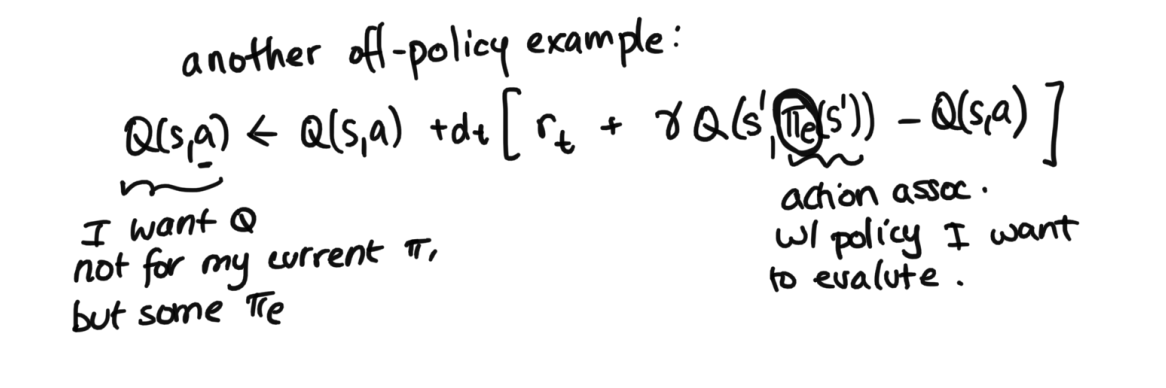 another off-policy example:
Q(s,a) ← Q(s,a) + αt [ rt + γ Q(s', πe(s')) - Q(s,a) ]
I want Q
not for my current π,
but some πe
action assoc.
w/ policy I want
to evalute.